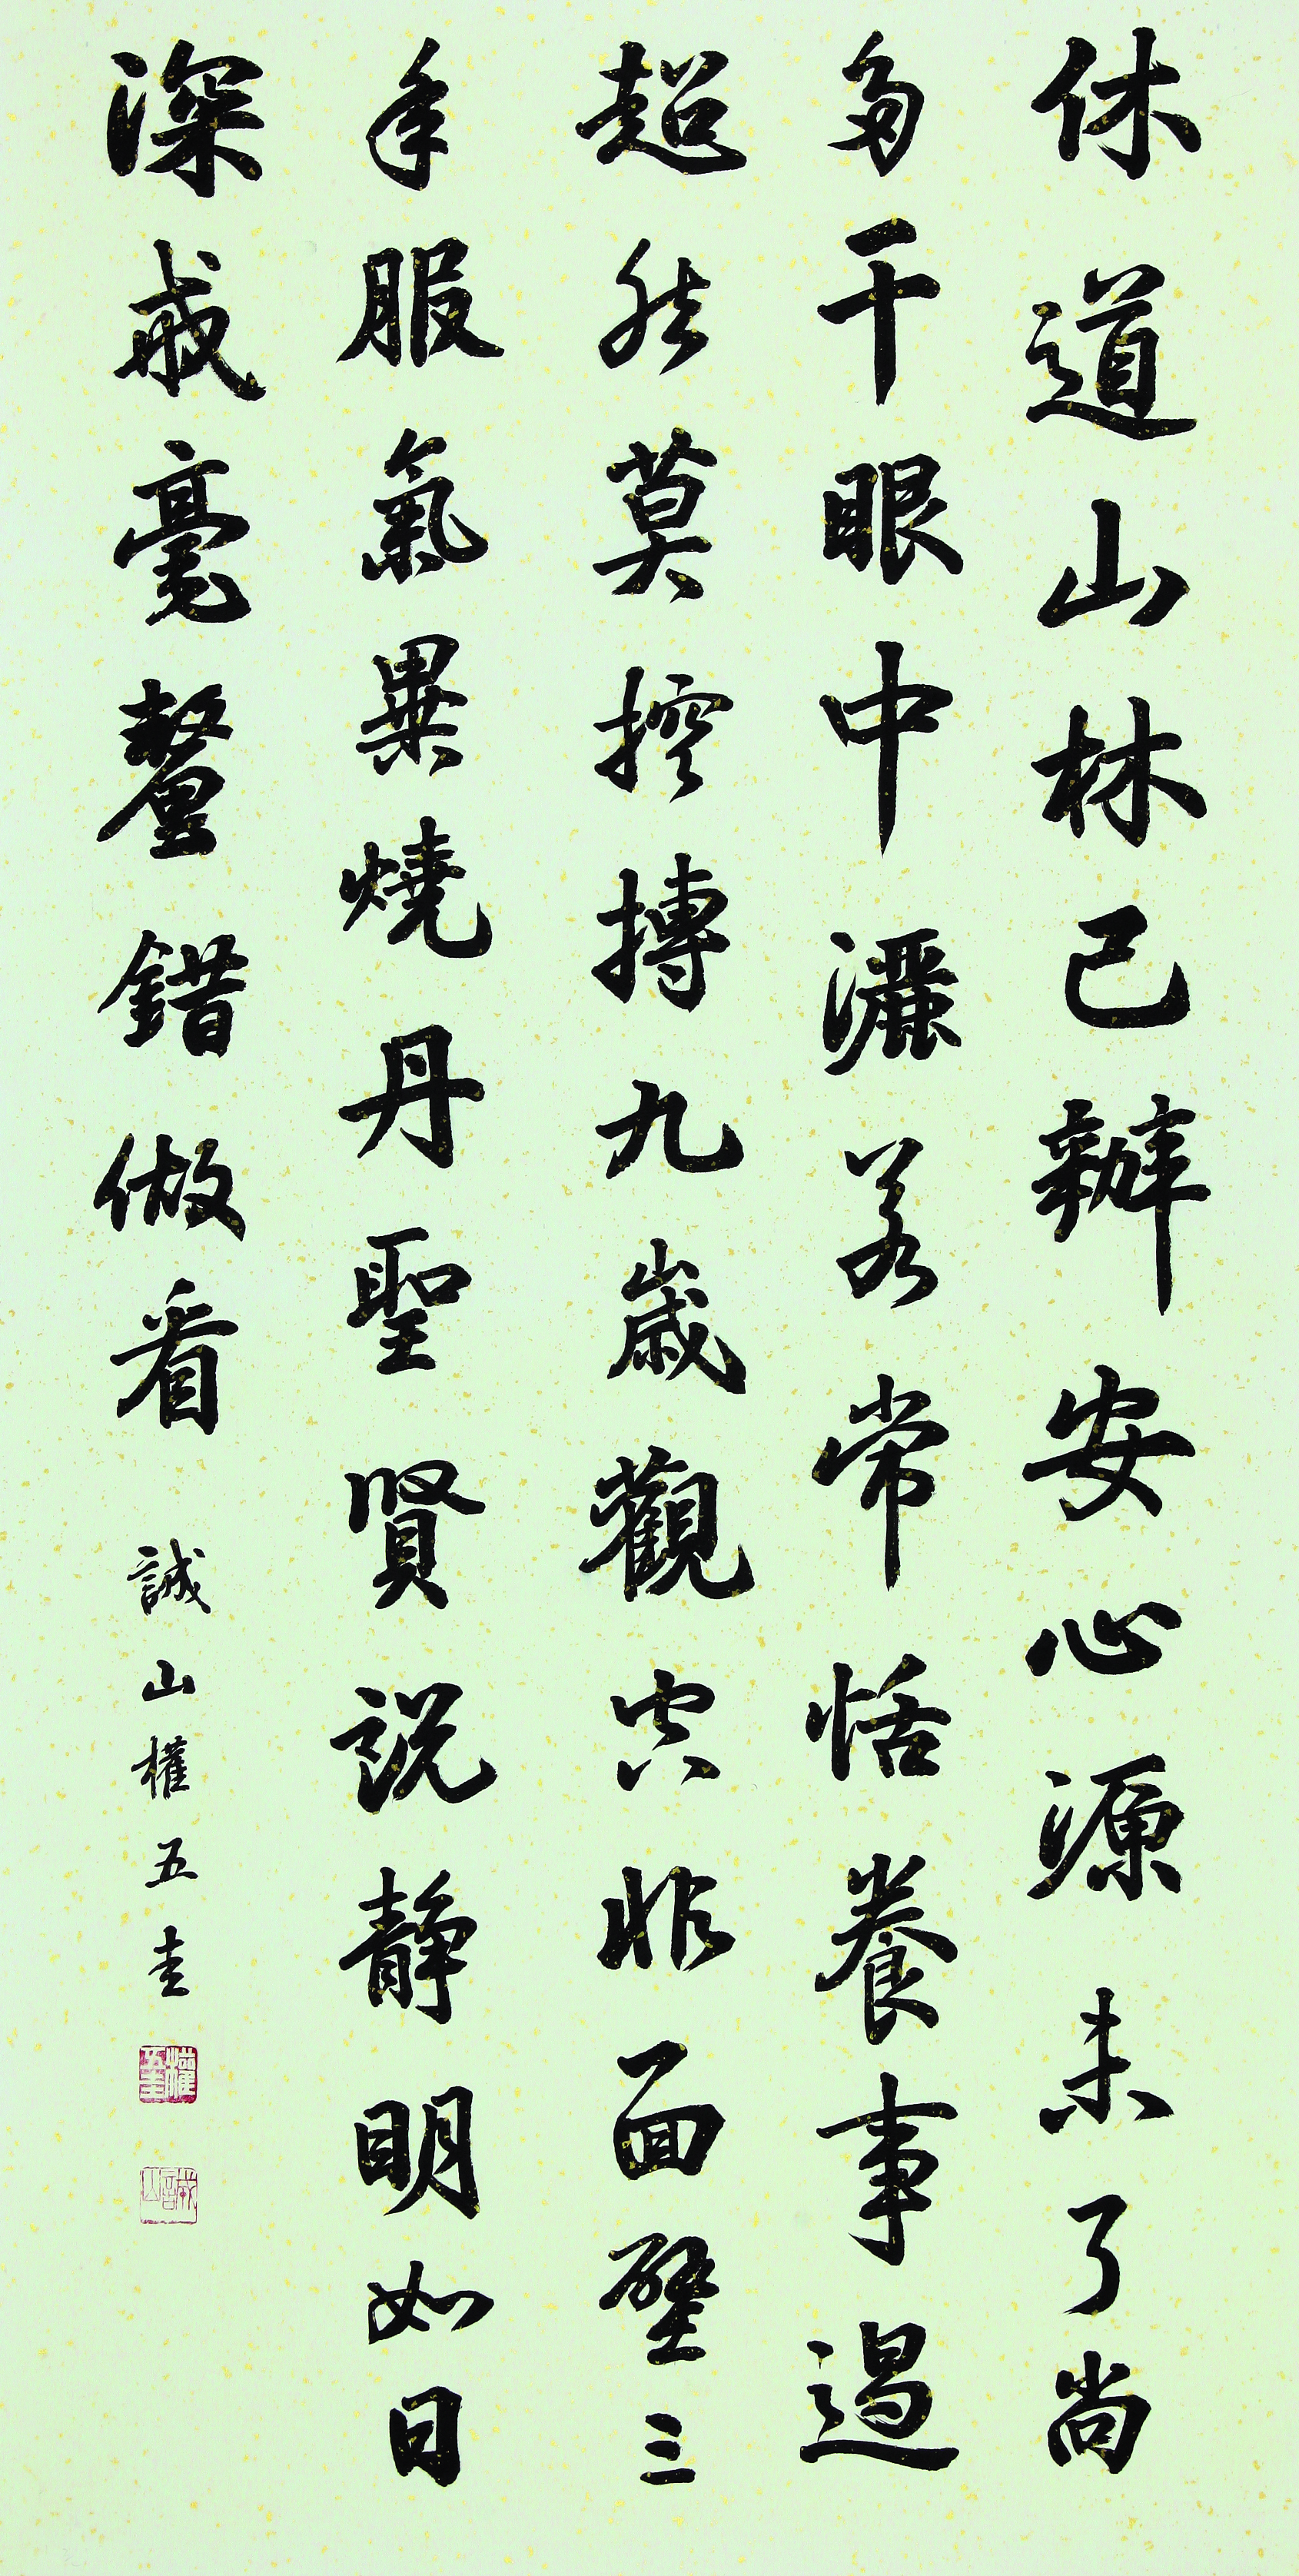 休道山林已辦安心源未了尚
多干眼中灑若常恬養事過
超然莫控搏九歲觀空非面壁三
年服氣異燒丹聖賢說靜明如日
深戒毫釐錯做看
誠山權五圭
權五圭
誠山